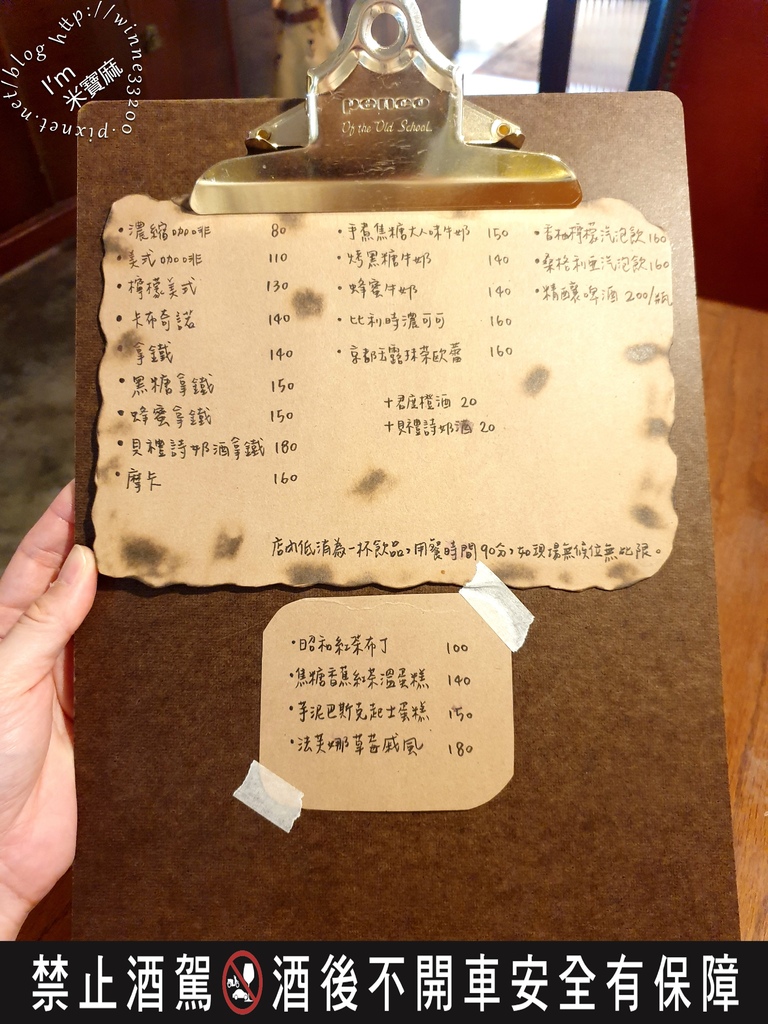 http://winne33200.pixnet.net/blog
I'm
米寶麻
penco
Of the Old School.
・濃縮咖啡 80
・美式咖啡 110
・檸檬美式 130
・卡布奇諾 140
・拿鐵 140
・黑糖拿鐵 150
・蜂蜜拿鐵 150
・貝禮詩奶酒拿鐵 180
・摩卡 160
・手煮焦糖大人味牛奶 150
・烤黑糖牛奶 140
・蜂蜜牛奶 140
・比利時濃可可 160
・京都玉露抹茶歐蕾 160
+君度橙酒 20
+貝禮詩奶酒 20
・香柚檸檬汽泡飲 160
・桑格利亞汽泡飲 160
・精釀啤酒 200/瓶
店內低消為一杯飲品,用餐時間90分,如現場無候位無此限。
・昭和紅茶布丁 100
・焦糖香蕉紅茶溫蛋糕 140
・芋泥巴斯克起士蛋糕 150
・法芙娜草莓戚風 180
禁止酒駕 酒後不開車安全有保障